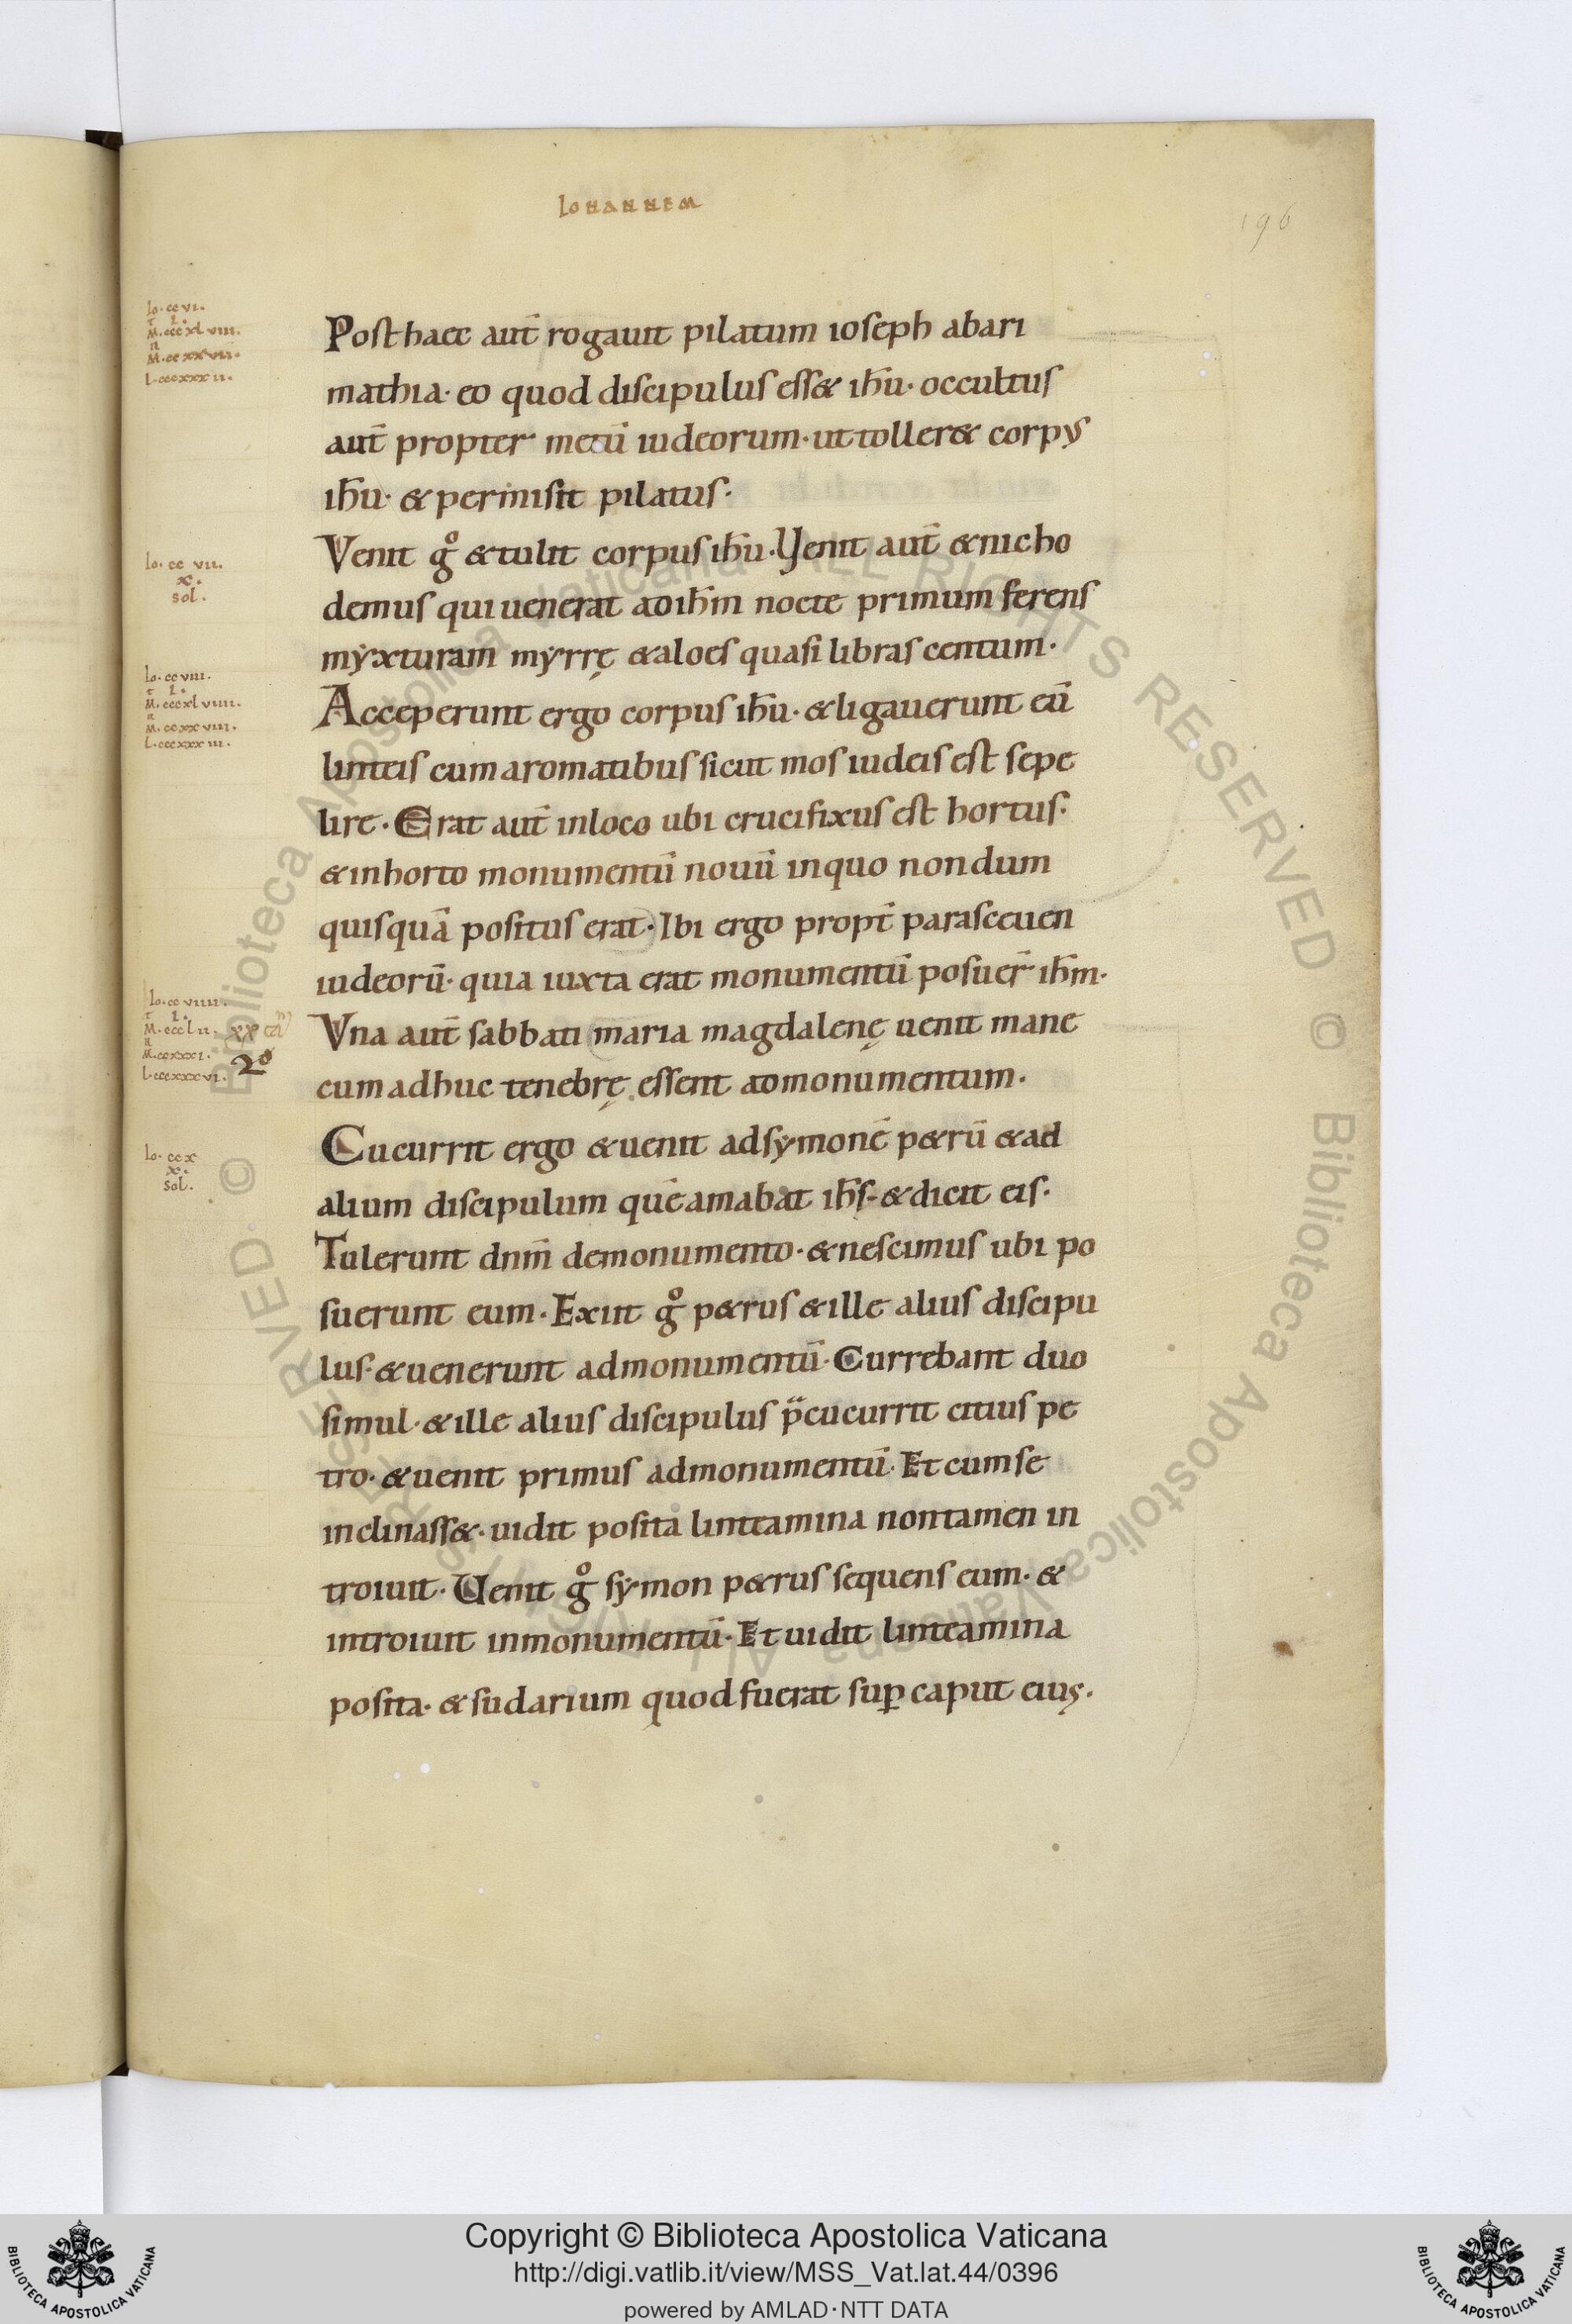 IOHANNEM
196
Io. cc vi.
I.
M. cccxl viii.
M. cc xx vii.
L. cccxxx ii.
Post haec aut̄ rogauit pilatum ioseph abari
mathia· eo quod discipulus ess& ih̄u· occultus
aut̄ propter metū iudeorum· ut toller& corpus
ih̄u· & permisit pilatus·
Venit gͦ & tulit corpus ih̄u· Venit aut̄ & nicho
demus qui uenerat ad ih̄m nocte primum ferens
myxturam myrrę & aloes quasi libras centum·
Acceperunt ergo corpus ih̄u· & ligauerunt eū
linteis cum aromatibus sicut mos iudeis est sepe
lire· Erat aut̄ in loco ubi crucifixus est hortus·
& in horto monumentū nouū in quo nondum
quisquā positus erat· Ibi ergo propt̄ parasceuen
iudeorū· quia iuxta erat monumentū posuer̄ ih̄m·
Vna aut̄ sabbati maria magdalenę uenit mane
cum adhuc tenebrę essent ad monumentum·
Cucurrit ergo & uenit ad symonē p&rū & ad
alium discipulum quē amabat ih̄s· & dicit eis·
Tulerunt dnm̄ de monumento· & nescimus ubi po
suerunt eum· Exiit gͦ p&rus & ille alius discipu
lus· & uenerunt ad monumentū· Currebant duo
simul· & ille alius discipulus p̄cucurrit citius pe
tro· & uenit primus ad monumentū· Et cum se
inclinass&· uidit posita linteamina non tamen in
troiuit· Uenit gͦ symon p&rus sequens eum· &
introiuit in monumentū· Et uidit linteamina
posita· & sudarium quod fuerat suꝑ caput eius·
Io. cc vii.
x.
sol.
Io. cc viii.
I.
M. cccxl viiii.
M. ccxx viii.
L. cccxxx iii.
Io. cc viiii.
I.
M. cccl ii.
M. ccxxxi.
L. cccxxx vi.
Io. ccx
x.
sol.
© Biblioteca Apostolica Vaticana ALL RIGHTS RESERVED
© Biblioteca Apostolica Vaticana ALL RIGHTS RESERVED
Copyright © Biblioteca Apostolica Vaticana
http://digi.vatlib.it/view/MSS_Vat.lat.44/0396
powered by AMLAD·NTT DATA
BIBLIOTECA APOSTOLICA VATICANA
BIBLIOTECA APOSTOLICA VATICANA